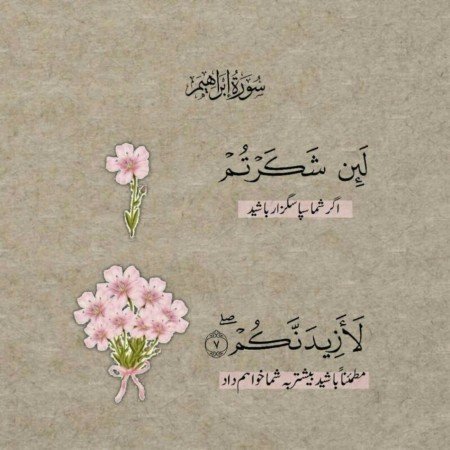 سُورَةُ إِبْرَاهِيم
لَئِن شَكَرْتُمْ
اگر شما سپاسگزار باشید
لَأَزِيدَنَّكُمْ ۖ ٧
مطمئناً باشید بیشتر به شما خواهم داد